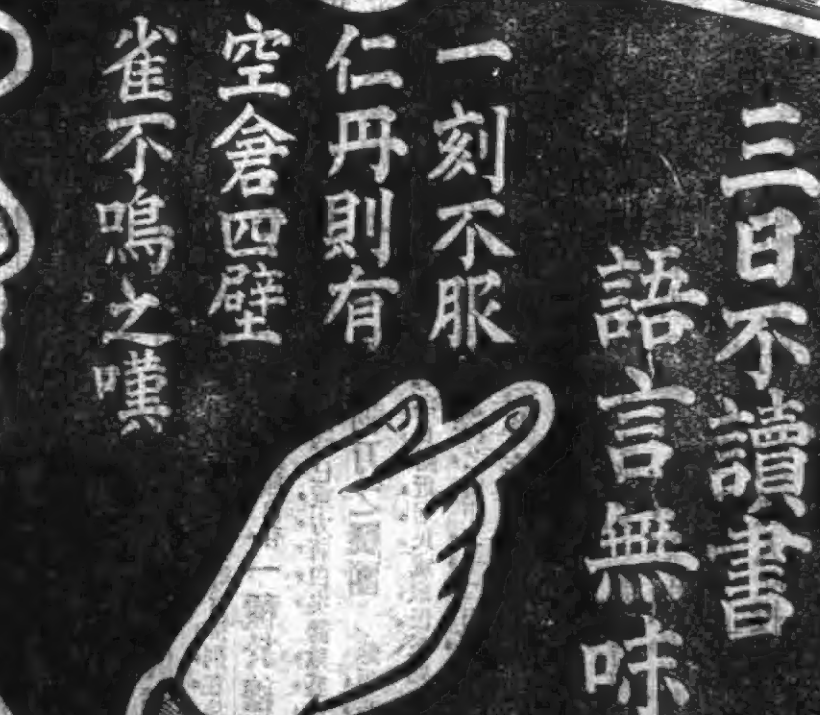 三日不讀書
語言無味
一刻不服
仁丹則有
空倉四壁
雀不鳴之嘆